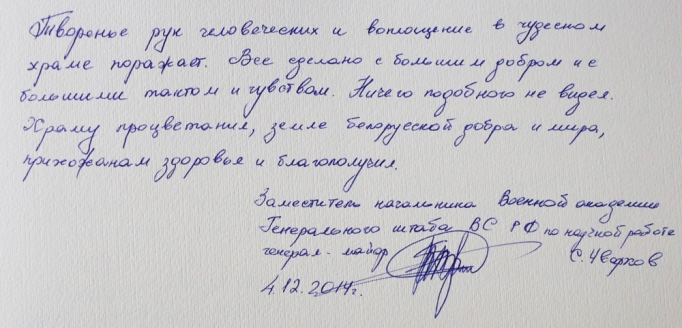 Творенье рук человеческих и воплощение в чудесном
храме поражает. Все сделано с большим добром и с
большими тактом и чувством. Ничего подобного не видел.
Храму процветания, земле белорусской добра и мира,
прихожанам здоровья и благополучия.
Заместитель начальника Военной академии
Генерального штаба ВС РФ по научной работе
генерал-майор С. Чварков
4.12.2014г.